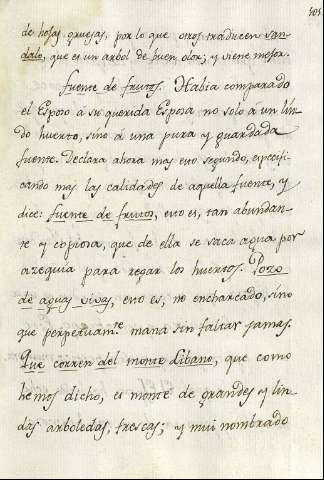 101
de hojas gruesas, por lo que otros traducen san-
dalo, que es un arbol de buen olor; y viene mejor.
Fuente de frutos. Habia comparado
el Esposo á su querida Esposa no solo á un lin-
do huerto, sino á una pura y guardada
fuente. Declara ahora mas esto segundo, especifi-
cando mas las calidades de aquella fuente, y
dice: fuente de frutos, esto es, tan abundan-
te y copiosa, que de ella se saca agua por
azequia para regar los huertos. Pozo
de aguas vivas, esto es; no encharcado, sino
que perpetuamte. mana sin faltar jamas.
Que corren del monte Libano, que como
hemos dicho, es monte de grandes y lin-
das arboledas, frescas; y mui nombrado